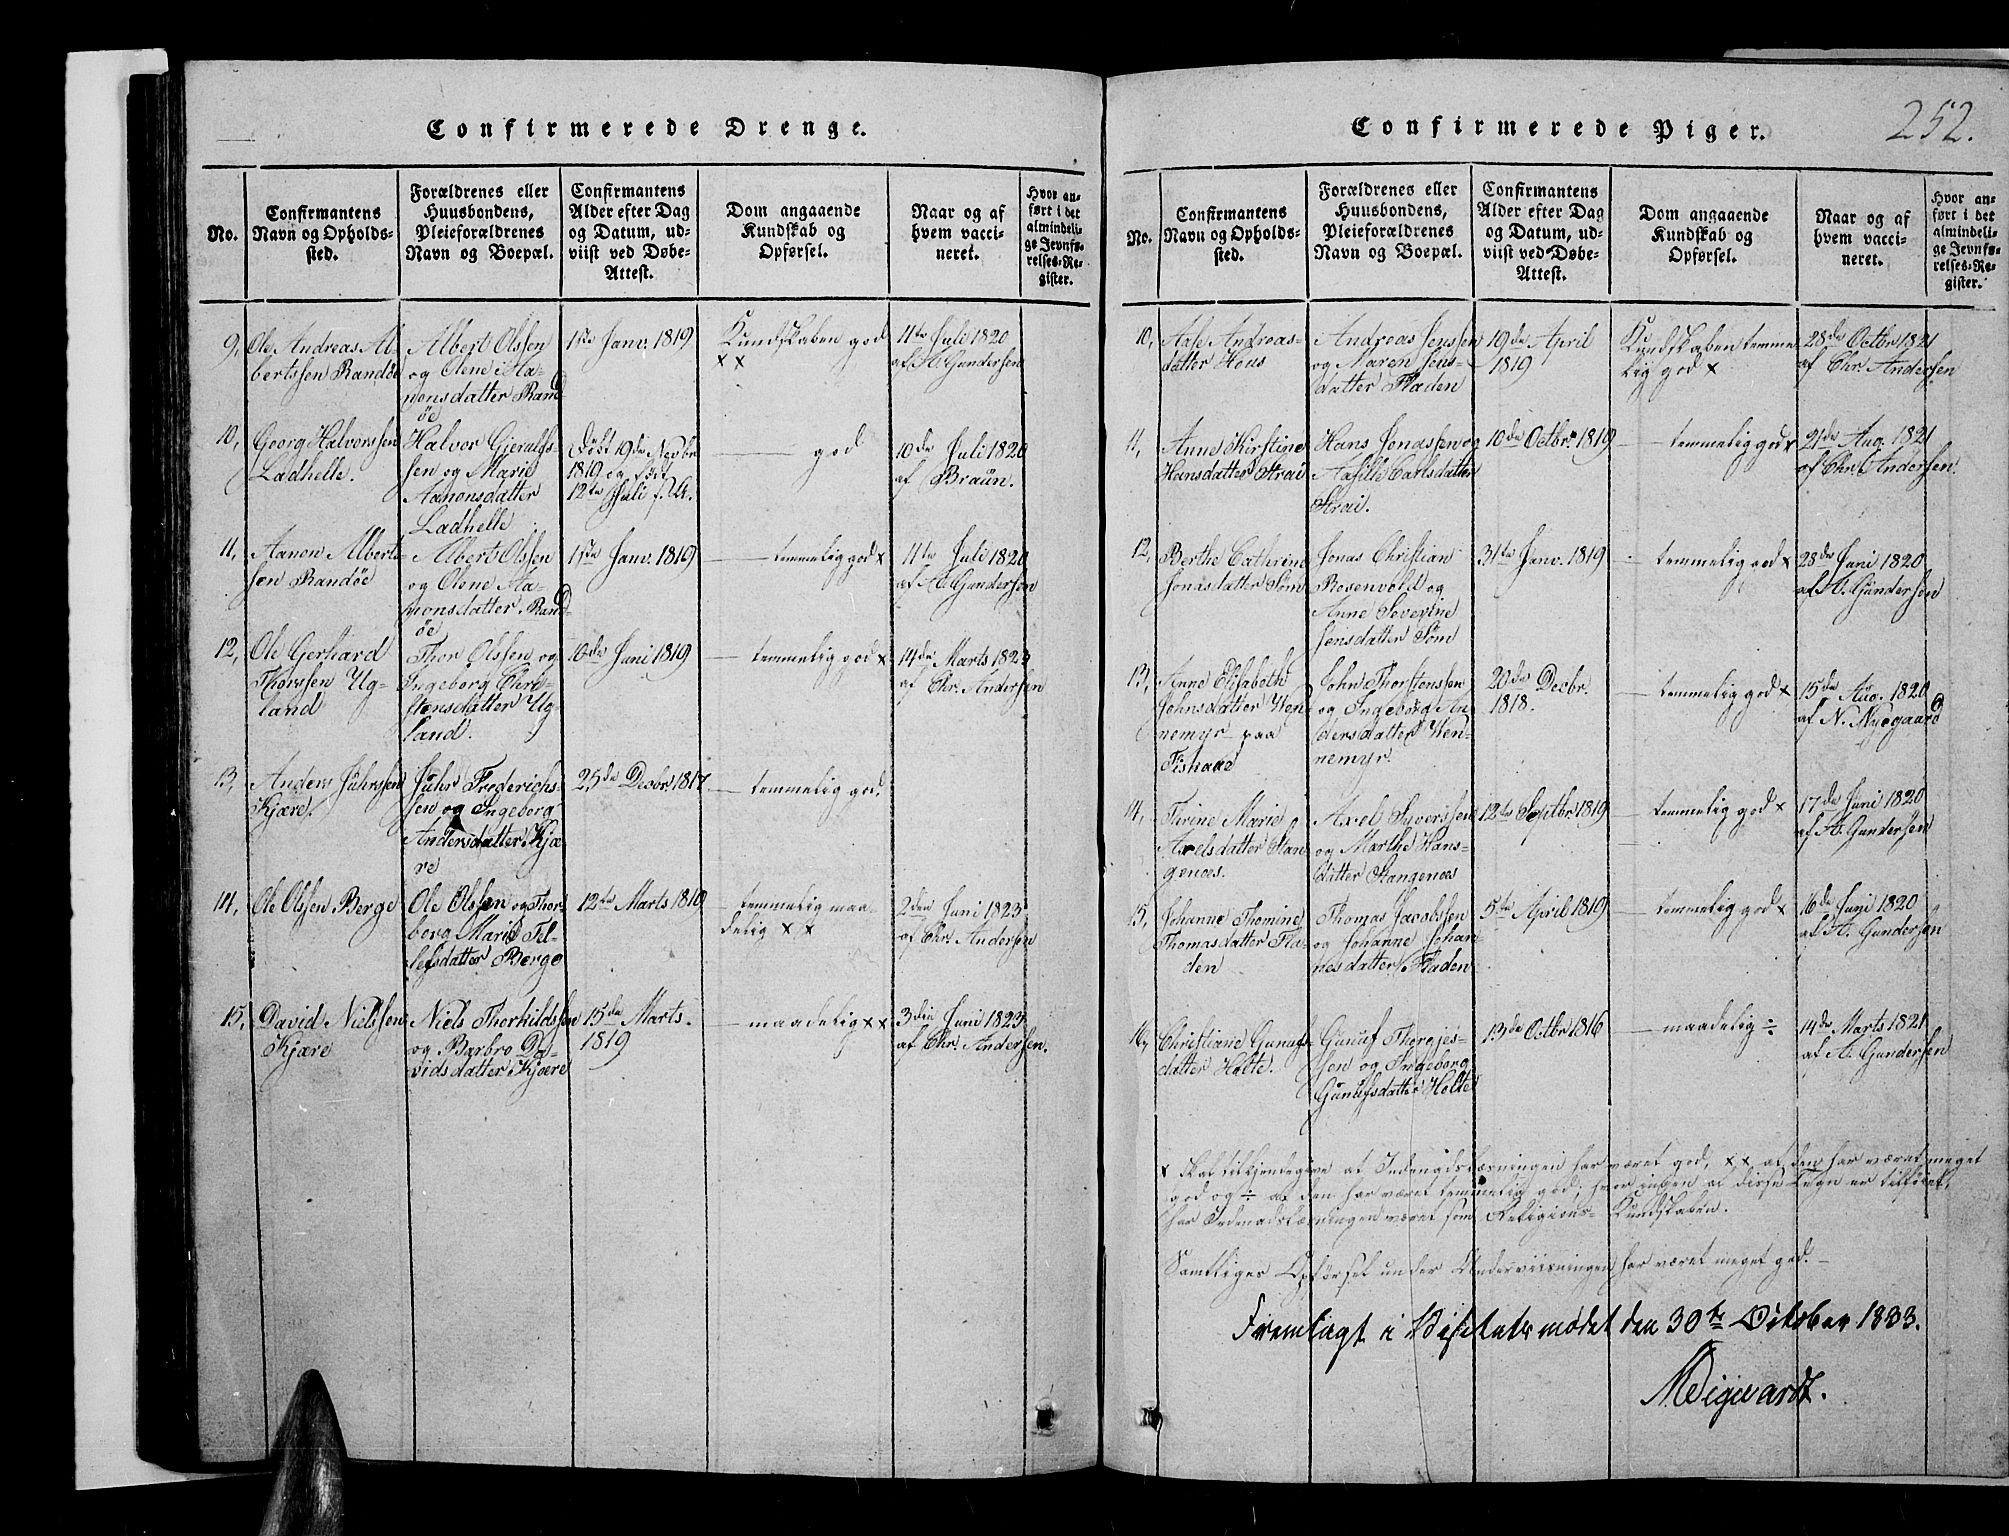 Confirmerede Drenge.
No.
Confirmantens
Navn og Opholds-
sted.
Forældrenes eller
Huusbondens,
Pleieforældrenes
Navn og Boepæl.
Confirmantens
Alder efter Dag
og Datum, ud-
viist ved Døbe-
Attest.
Dom angaaende
Kundskab og
Opførsel.
Naar og af
hvem vacci-
neret.
Hvor an-
ført i det
almindeli-
ge Jevnfø-
relses-Re-
gister.
9, Ole Andreas Al-
bertssen Randøe
Albert Olssen
og Olene Aa-
nonsdatter Rand
öe
1ste Janv. 1819
Kundskaben god
x x
11te Juli 1820
af A. Gundersen
10, Georg Halvorssen
Ladhelle.
Halvor Gjerals-
sen og Marie
Aanonsdatter
Ladhelle
Døbt 19de Novbr
1819 og født
12te Juli s. A.
— god
10de Juli 1820
af Braün.
11, Aanon Alberts-
sen Randöe
Albert Olssen
og Olene Aa-
nonsdatter Rand-
öe
1ste Janv. 1819
— temmelig god x
11te Juli 1820
af A. Gundersen
12, Ole Gerhard
Thorssen Ug-
land
Thor Olssen og
Ingeborg Chri-
stensdatter Ug-
land.
10de Juni 1819
— temmelig god x
14de Marts 1823
af Chr. Andersen
13, Anders Juhrssen
Kjære.
Juhr Frederichs-
sen og Ingeborg
Andersdatter Kjæ
re
25de Decbr 1817
— temmelig god,
14, Ole Olssen Berge
Ole Olssen og Thor-
borg Marie Tel-
lefsdatter Berge
12te Marts 1819
— temmelig maa-
delig x x
2den Juni 1823
af Chr. Andersen
15, David Nielssen
Kjære
Niels Thorkildssen
og Barbro Da-
vidsdatter Kjære
15de Marts
1819
— maadelig x x
3die Juni 1823
af Chr. Andersen.
Confirmerede Piger.
252.
No.
Confirmantens
Navn og Opholds-
sted.
Forældrenes eller
Huusbondens,
Pleieforældrenes
Navn og Boepæl.
Confirmantens
Alder efter Dag
og Datum, ud-
viist ved Døbe-
Attest.
Dom angaaende
Kundskab og
Opførsel.
Naar og af
hvem vacci-
neret.
Hvor an-
ført i det
almindeli-
ge Jevnfø-
relses-Re-
gister.
10, Aase Andreas-
datter Hous
Andreas Jenssen
og Maren Jens-
datter Fladen
19de April
1819
Kundskaben temme
lig god x
28de Octbr 1821
af Chr. Andersen
11, Anne Kirstine
Hansdatter Strai
Hans Jonassen og
Aasille Carlsdatter
Strai.
10de Octbr 1819
— temmelig god x
21de Aug. 1821
af Chr. Andersen.
12, Berthe Cathrine
Jonasdatter Söm
Jonas Christian
Rosenvold og
Anne Severine
Jensdatter Söm
31te Janv. 1819
— temmelig god x
28de Juni 1820
af A. Gundersen
13, Anne Elisabeth
Johnsdatter Wen
nemyr paa
Fiskaae
John Thorstenssen
og Ingeborg An
dersdatter Wen-
nemyr.
20de Decbr.
1818.
— temmelig god x
15de Aug. 1820
af N. Nyegaard
14, Thrine Marie
Axelsdatter Stan
genæs.
Axel Syverssen
og Marthe Hans-
datter Stangenæs
12te Septbr 1819
— temmelig god x
17de Juni 1820
af A. Gundersen
15, Johanne Thomine
Thomasdatter Fla-
den
Thomas Jacobssen
og Johanne Johan-
nesdatter Fladen
5te April 1819
— temmelig god x
16de Juni 1820
af A. Gundersen
16, Christiane Gunufs-
datter Holte.
Gunuf Thorgjes-
sen og Ingeborg
Gunufsdatter Holte
13de Octbr 1816
— maadelig ÷
14de Marts 1821
af A. Gundersen
x skal tilkjendegive at Indenadslæsningen har været god, x x at den har været meget
god og ÷ at den har været temmelig god; hvor ingen af disse Tegn er tilføiet,
har Indenadslæsningen været som Religions-Kundskaben.
Samtliges Opførsel under Underviisningen har været meget god. —
Fremlagt i Visitatsmødet den 30te October 1833.